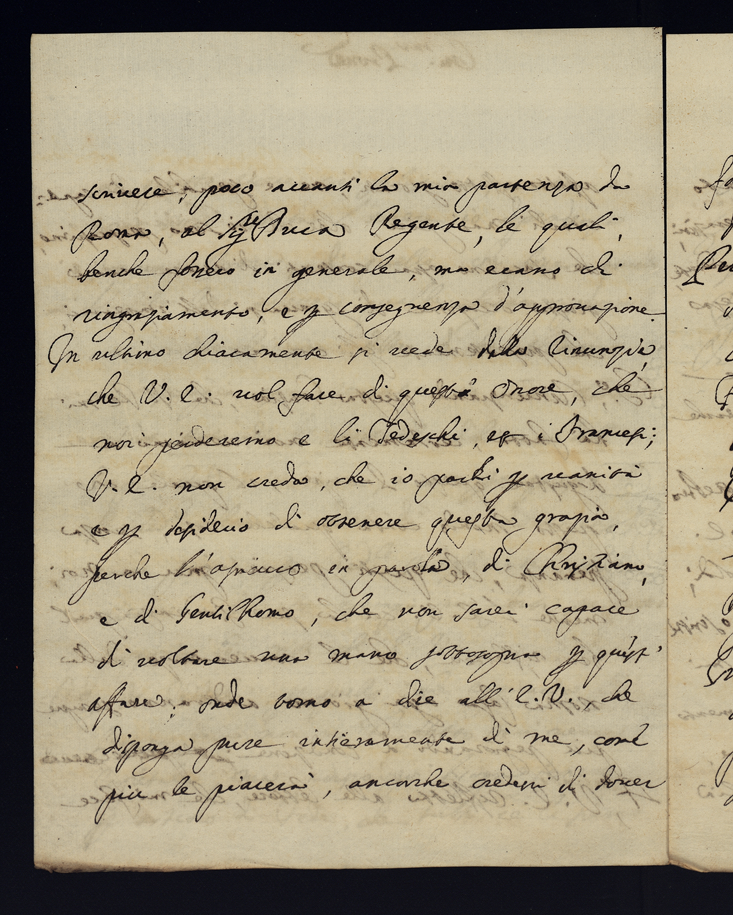 scrivere, poco avanti la mia partenza da
Roma, al Sig.re Duca Regente, le quali,
benche fossero in generale, ma erano di
ringraziamento, e p consequenza d'approvazione.
In ultimo chiaramente si vede dalla rinunzia,
che V. E. vol fare di questo onore, che
noi perderemo e li Tedeschi, et i Francesi;
V. E. non creda, che io parli p vanità
e p desiderio di ottenere questa grazia,
perche l'assicuro in parola, di Christiano,
e di Gentilhomo, che non sarei capace
di voltare una mano sottosopra p quest'
affare; onde torno a dire all'E. V. che
disponga pure intieramente di me, come
più le piacerà, ancorche credessi di dover